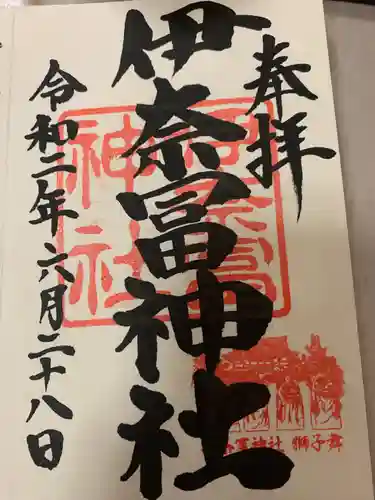 奉拝
伊奈冨神社
令和二年六月二十八日
伊奈冨神社
冨神社 獅子舞